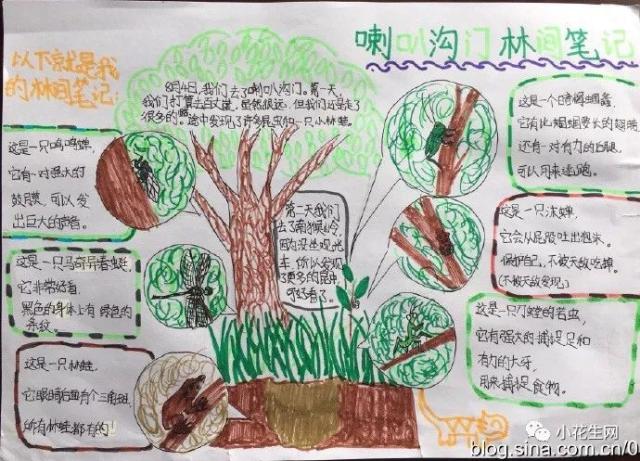 喇叭沟门林间笔记
以下就是我
的林间笔记:
8月4日,我们去了喇叭沟门。第一天,
我们打算去百丈崖,虽然很远,但我们还是走了
很多的路。途中发现了许多昆虫和一只小林蛙。
这是一只鸣鸣蝉,
它有一对强大的
鼓膜,可以发
出巨大的声音。
这是一只马奇异春蜓,
它非常好看,
黑色的身体上有绿色的
条纹
这是一只林蛙,
它眼睛后面有个三角斑,
所有林蛙都有的!
第二天我们
去了南猴岭,
因为没坐观光
车,所以发现
了更多的昆虫
可好看了。
这是一个暗褐蝈螽,
它有比蝈蝈要长的翅膀
还有一对有力的后腿,
可以用来逃跑。
这是一只沫蝉,
它会从屁股吐出泡沫。
保护自己,不被天敌吃掉。
(不被天敌发现)
这是一只刀螳的若虫,
它有强大的捕捉足和
有力的大牙,
用来捕捉食物。
小花生网
blog.sina.com.cn/0